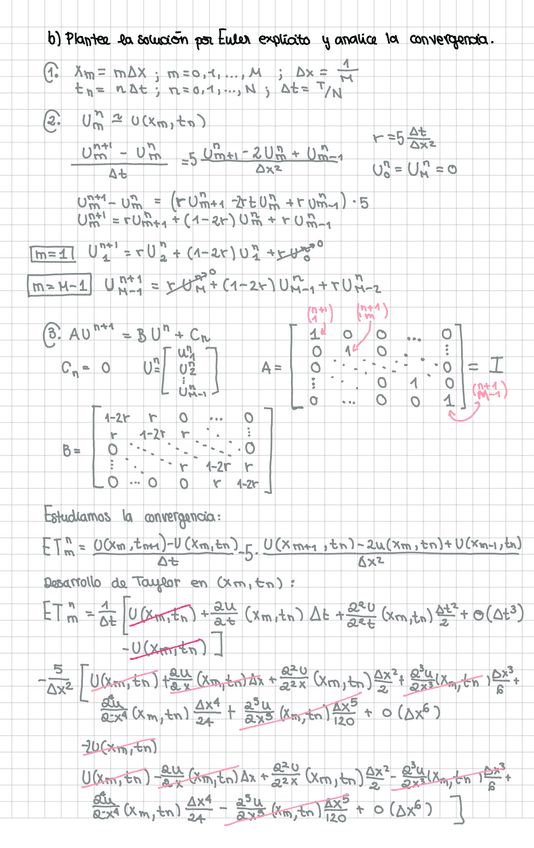 b) Plantee la solución por Euler explícito y analice la convergencia.
①. Xm = mΔx ; m=0,1,...,M ; Δx = 1/M
tn = nΔt ; n=0,1,...,N ; Δt = T/N
②. U_m^n ≃ U(xm,tn)
(U_m^{n+1} - U_m^n)/Δt = 5 (U_{m+1}^n - 2U_m^n + U_{m-1}^n)/Δx²
r = 5 Δt/Δx²
U_0^n = U_M^n = 0
U_m^{n+1} - U_m^n = (r U_{m+1}^n - 2rt U_m^n + r U_{m-1}^n) · 5
U_m^{n+1} = r U_{m+1}^n + (1-2r) U_m^n + r U_{m-1}^n
m=1 U_1^{n+1} = r U_2^n + (1-2r) U_1^n + r U_0^n →0
m=M-1 U_{M-1}^{n+1} = r U_M^n →0 + (1-2r) U_{M-1}^n + r U_{M-2}^n
③. AU^{n+1} = BU^n + Cn
(n+1 1) (n+1 m)
Cn = 0 U^n = [U_1^n U_2^n ⋮ U_{M-1}^n] A =
1 0 0 ... 0
0 1 0 ⋮
0 0
⋮ 0 1 0
0 ... 0 0 1
= I
(n+1 M-1)
B =
1-2r r 0 ... 0
r 1-2r r ⋮
0 0
⋮ r 1-2r r
0 ... 0 0 r 1-2r
Estudiamos la convergencia:
ET_m^n = (U(xm,tn+1) - U(xm,tn))/Δt - 5 · (U(xm+1,tn) - 2u(xm,tn) + U(xm-1,tn))/Δx²
Desarrollo de Taylor en (xm,tn):
ET_m^n = 1/Δt [ U(xm,tn) + ∂u/∂t (xm,tn) Δt + ∂²u/∂²t (xm,tn) Δt²/2 + O(Δt³)
- U(xm,tn) ]
- 5/Δx² [ U(xm,tn) + ∂u/∂x (xm,tn) Δx + ∂²u/∂²x (xm,tn) Δx²/2 + ∂³u/∂x³ (xm,tn) Δx³/6 +
∂⁴u/∂x⁴ (xm,tn) Δx⁴/24 + ∂⁵u/∂x⁵ (xm,tn) Δx⁵/120 + O(Δx⁶)
-2U(xm,tn)
U(xm,tn) - ∂u/∂x (xm,tn) Δx + ∂²u/∂²x (xm,tn) Δx²/2 - ∂³u/∂x³ (xm,tn) Δx³/6 +
∂⁴u/∂x⁴ (xm,tn) Δx⁴/24 - ∂⁵u/∂x⁵ (xm,tn) Δx⁵/120 + O(Δx⁶) ]